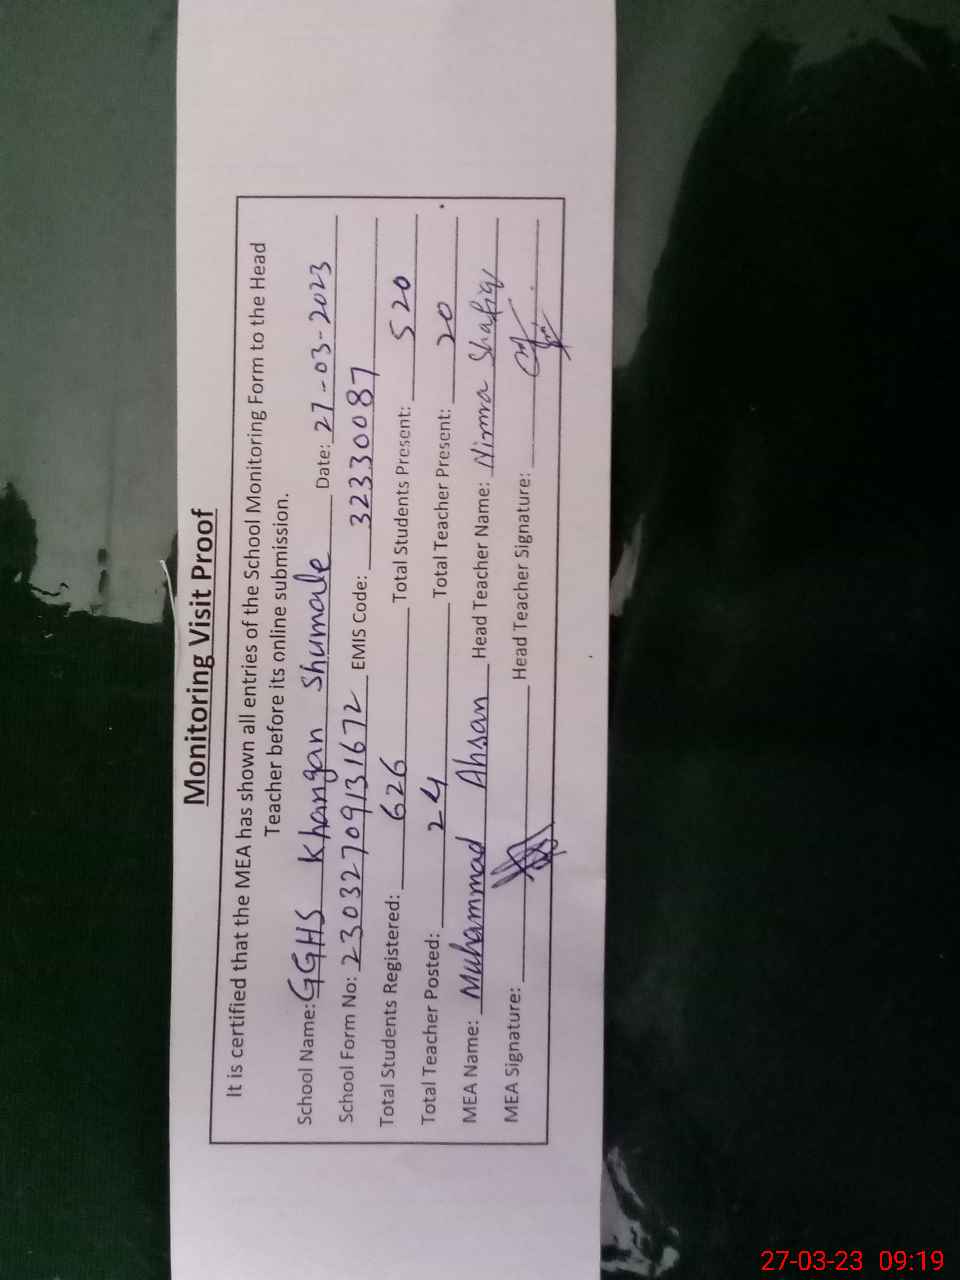 Monitoring Visit Proof
It is certified that the MEA has shown all entries of the School Monitoring Form to the Head
Teacher before its online submission.
School Name: GGHS Khangan Shumale Date: 27-03-2023
School Form No: 23032709131672 EMIS Code: 32330087
Total Students Registered: 626 Total Students Present: 520
Total Teacher Posted: 24 Total Teacher Present: 20
MEA Name: Muhammad Ahsan Head Teacher Name: Nimra Shafiq
MEA Signature: Head Teacher Signature:
27-03-23 09:19